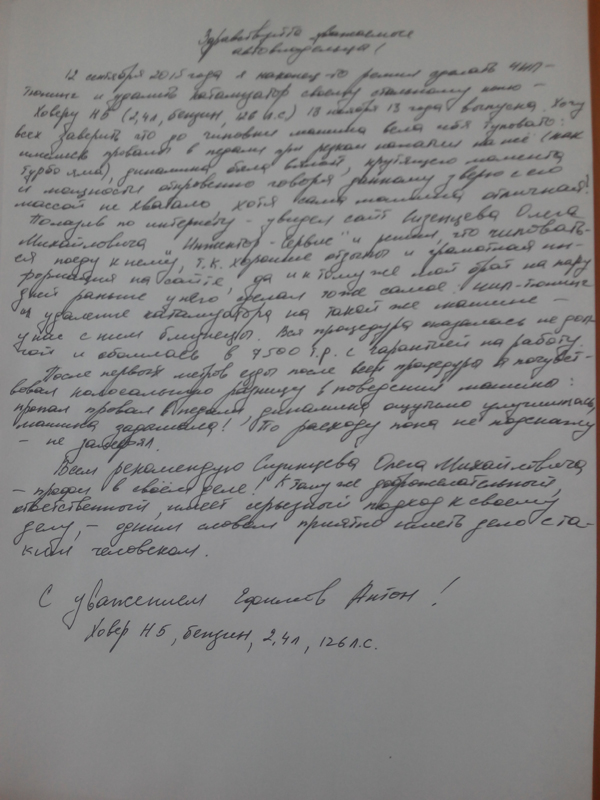 Здравствуйте уважаемые
автовладельцы!
12 сентября 2015 года я наконец-то решил сделать чип-
тюнинг и удалить катализатор своему стальному коню –
Ховеру H5 (2,4л, бензин, 126 л.с.) 13 ноября 13 года выпуска. Хочу
всех заверить что до чиповки машина вела себя туповато:
имелись провалы в педали при резком нажатии на неё (как
турбо яма), динамика была вялой, крутящего момента
и мощности откровенно говоря, данному зверю с его
массой не хватало хотя сама машина отличная!
Полазив по интернету – увидел сайт Олега
Михайловича "Инжектор-Сервис" и решил, что чиповать-
ся поеду к нему, т.к. хорошие отзывы и грамотная ин-
формация на сайте, да и к тому же мой брат на пару
дней раньше у него сделал тоже самое: чип-тюнинг
и удаление катализатора на такой же машине –
у нас с ним близнецы. Вся процедура оказалась не дол-
гой и обошлась в 7500 т.р. с гарантией на работу.
После первых метров езды после всей процедуры я почувст-
вовал колоссальную разницу в поведении машины:
пропал провал в педали, динамика ощутимо улучшилась,
машина задышала! По расходу пока не подскажу
– не замерял.
Всем рекомендую Олега Михайловича
– профи в своём деле! К тому же доброжелательный,
ответственный, имеет серьёзный подход к своему
делу, – одним словом приятно иметь дело с та-
ким человеком.
С уважением Ефимов Антон!
Ховер H5, бензин, 2,4л, 126 л.с.